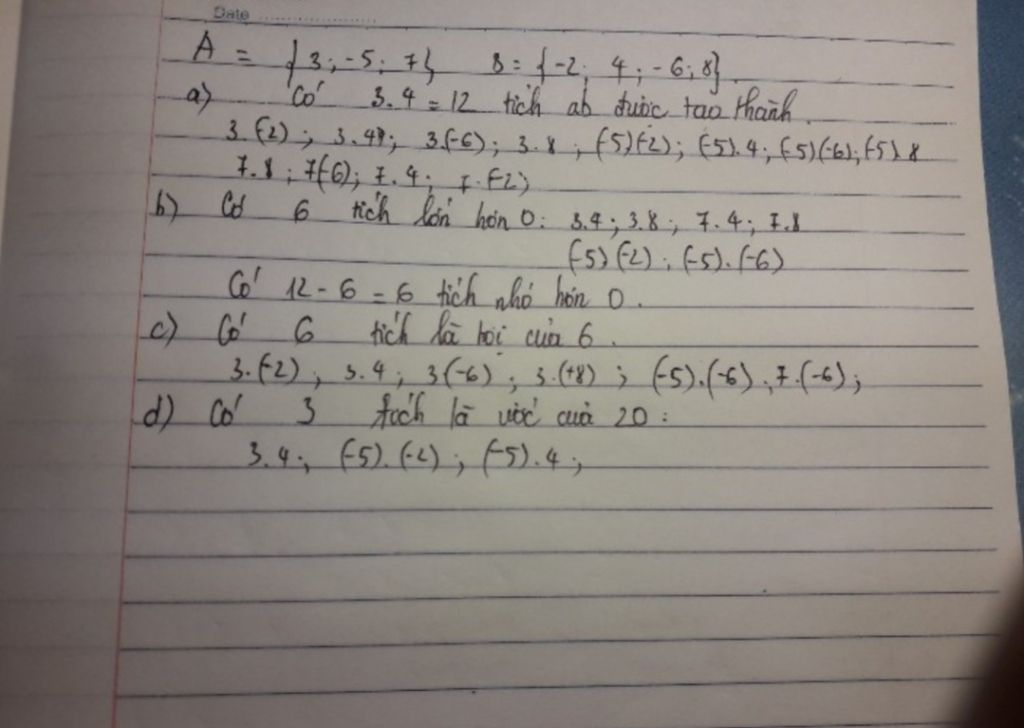 Date
A = {3; -5; 7} B = {-2; 4; -6; 8}
a) Có 3.4 = 12 tích ab được tạo thành.
3.(-2); 3.4; 3(-6); 3.8; (-5)(-2); (-5).4; (-5)(-6); (-5).8
7.8; 7(-6); 7.4; 7.(-2)
b) Có 6 tích lớn hơn 0: 3.4; 3.8; 7.4; 7.8
(-5)(-2); (-5).(-6)
Có 12 - 6 = 6 tích nhỏ hơn 0.
c) Có 6 tích là bội của 6.
3.(-2); 3.4; 3(-6); 3.(+8); (-5).(-6); 7.(-6);
d) Có 3 tích là ước của 20:
3.4; (-5).(-2); (-5).4;